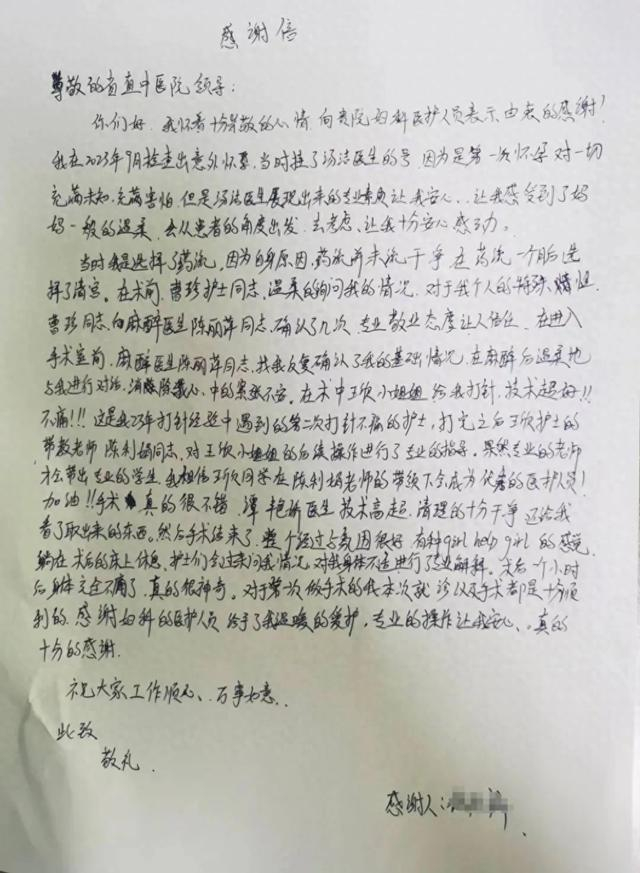 感谢信
尊敬的省直中医院领导：
你们好，我怀着十分尊敬的心情，向贵院妇科医护人员表示由衷的感谢！
我在2023年9月检查出意外怀孕，当时挂了汤洁医生的号，因为是第一次怀孕对一切
充满未知，充满害怕，但是汤洁医生展现出来的专业素质让我安心，让我感受到了妈
妈一般的温柔，会从患者的角度出发，去考虑，让我十分安心感动。
当时我是选择了药流，因为自身原因，药流并未流干净，在药流一个月后选
择了清宫。在术前，曹珍护士同志，温柔的询问我的情况，对于我个人的特殊情况，
曹珍同志，向麻醉医生陈丽萍同志，确认了几次，专业敬业态度让人信任，在进入
手术室前，麻醉医生陈丽萍同志，找我反复确认了我的基础情况，在麻醉后温柔地
与我进行对话，消除我心中的紧张不安。在术中王欣小姐姐给我打针，技术超好!!
不痛!!! 这是我23年打针经验中遇到的第二次打针不痛的护士，打完之后王欣护士的
带教老师陈利娟同志，对王欣小姐姐的后续操作进行了专业的指导。果然专业的老师
才会带出专业的学生，我相信王欣同学在陈利娟老师的带领下会成为优秀的医护人员！
加油!! 手术真的很不错，谭艳娇医生技术高超，清理的十分干净，还给我
看了取出来的东西。然后手术结束了，整个经过与氛围很好，有种girl help girl的感觉，
躺在术后的床上休息，护士们会过来问我情况，对我身体不适进行了专业解释。术后一个小时
后身体完全不痛了，真的很神奇。对于第一次做手术的我本次就诊以及手术都是十分顺
利的。感谢妇科的医护人员给予了我温暖的爱护，专业的操作让我安心，真的
十分的感谢。
祝大家工作顺心、万事如意。
此致
敬礼
感谢人：